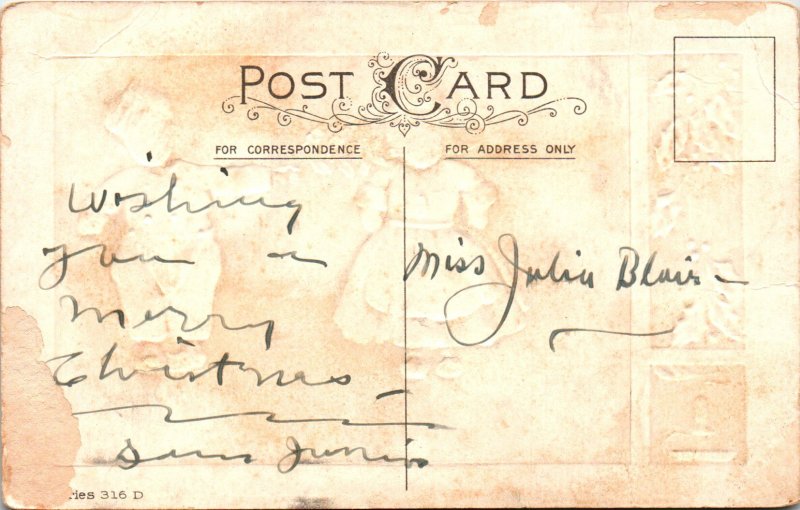 POST CARD
FOR CORRESPONDENCE
FOR ADDRESS ONLY
Wishing
you a
Merry
Christmas
Sam Junior
Miss Julia Blair
ries 316 D